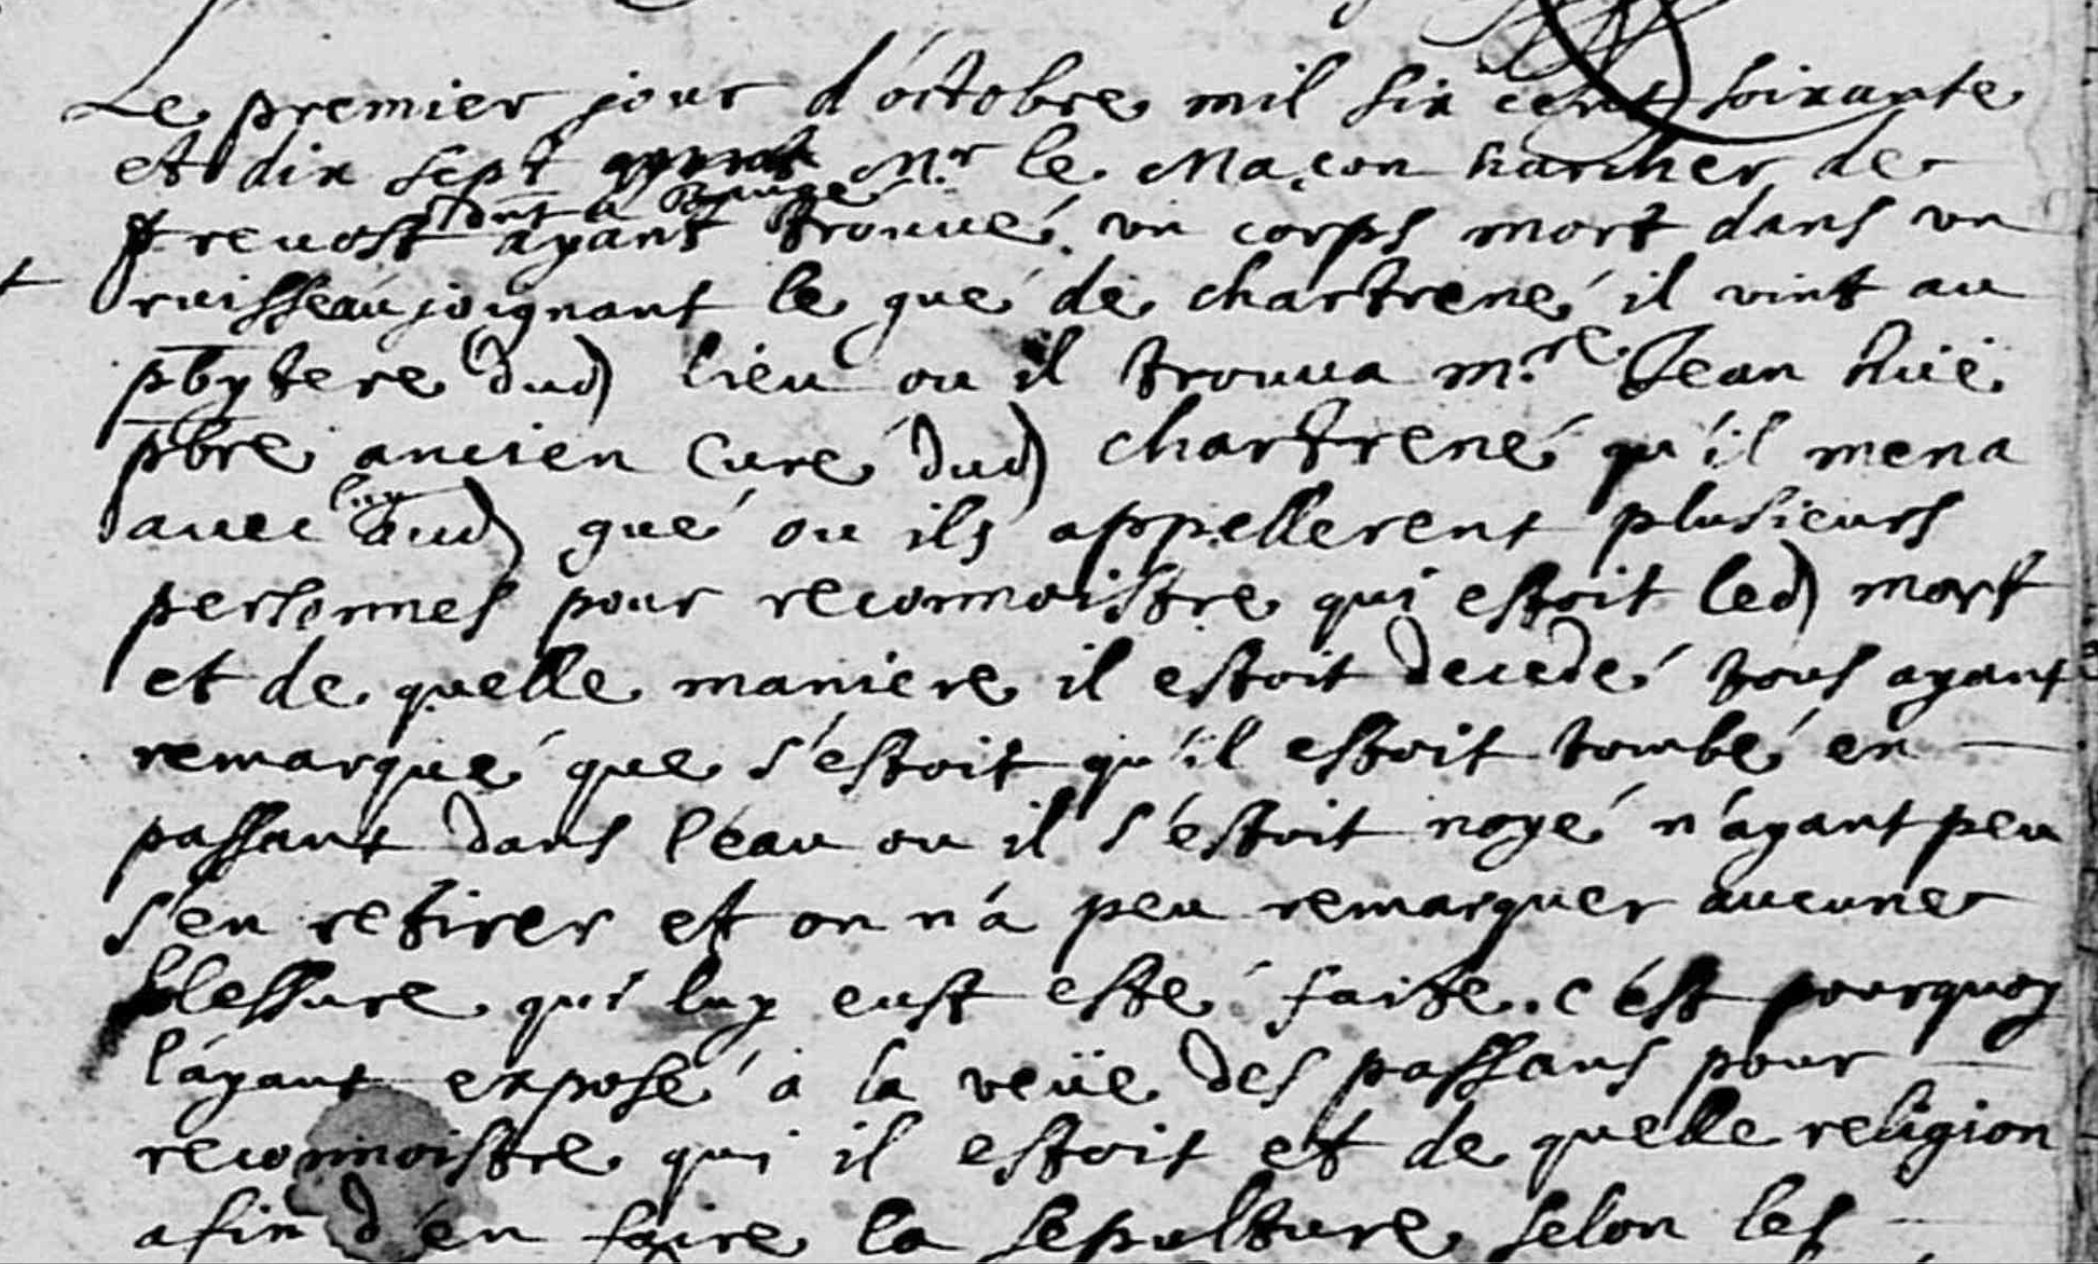 Le premier jour d'octobre mil six cent soixante
et dix sept Mr le Maçon harcher de
prevost dmt à Baugé ayant trouué un corps mort dans un
ruisseau joignant le gué de chartrené il vint au
pbytere dud lieu ou il trouua m.re Jean huë
pbre ancien Curé dud chartrené qu'il mena
auec luy aud gué ou ils appellerent plusieurs
personnes pour reconnoistre qui estoit led mort
et de quelle maniere il estoit decedé tous ayant
remarqué que s'estoit qu'il estoit tombé en
passant dans l'eau ou il s'estoit noyé n'ayant peu
s'en retirer et on n'a peu remarquer aucune
blessure qui luy eust esté faite. c'est pourquoy
l'ayant exposé à la veüe des passans pour
reconnoistre qui il estoit et de quelle religion
afin d'en faire la sepulture selon les